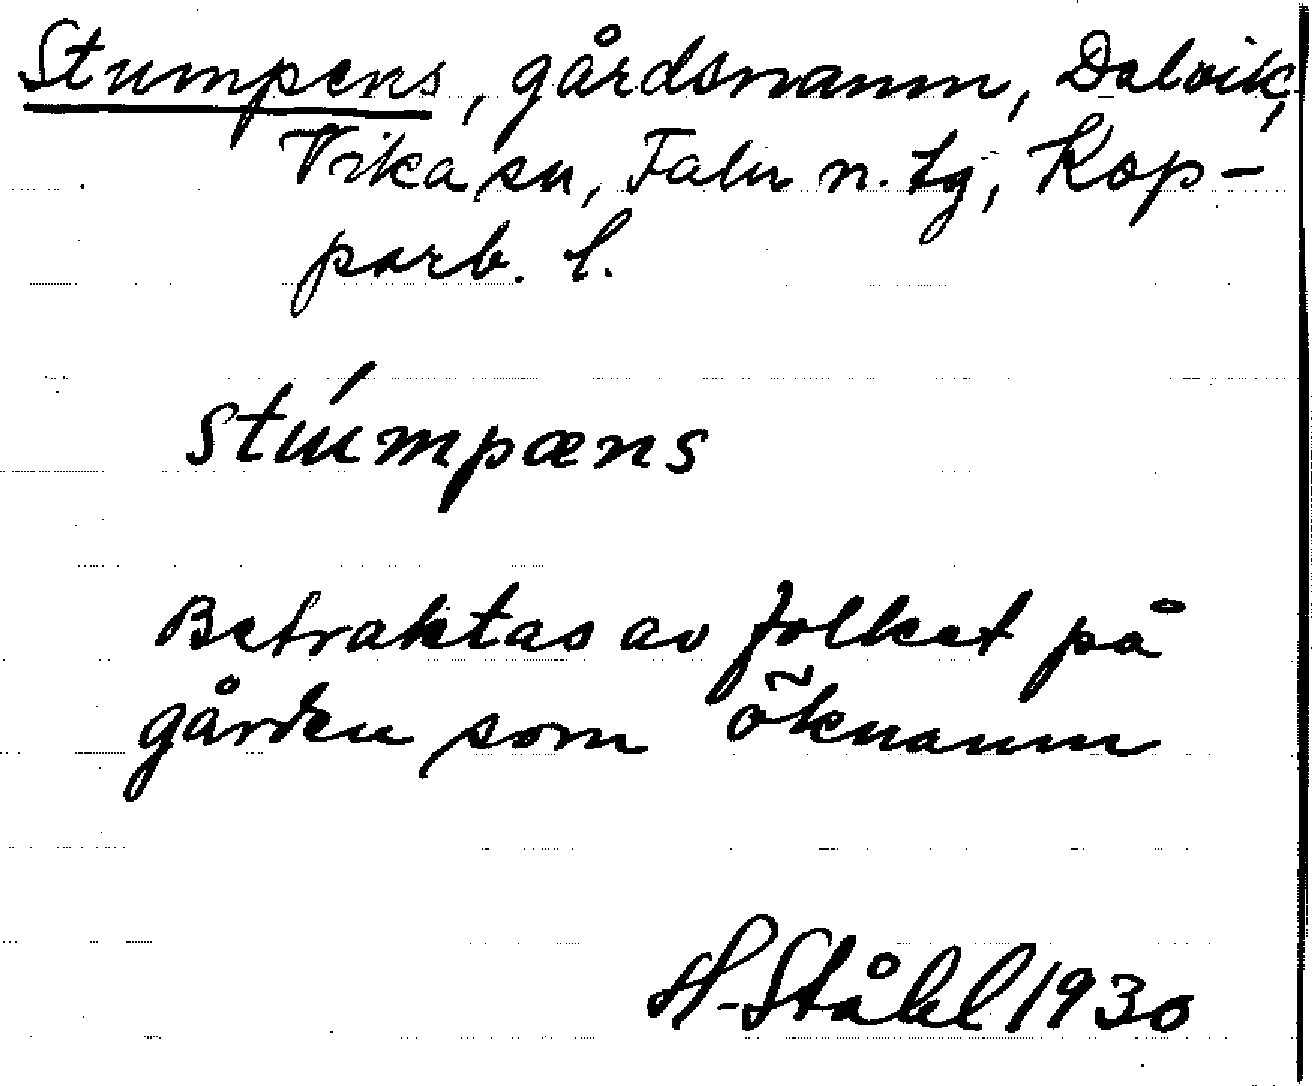 Stumpens, gårdsnamn, Dalvik,
Vika sn, Falu n. tg, Kop-
parb. l.
stúmpæns
Betraktas av folket på
gården som öknamn
H. Ståhl 1930